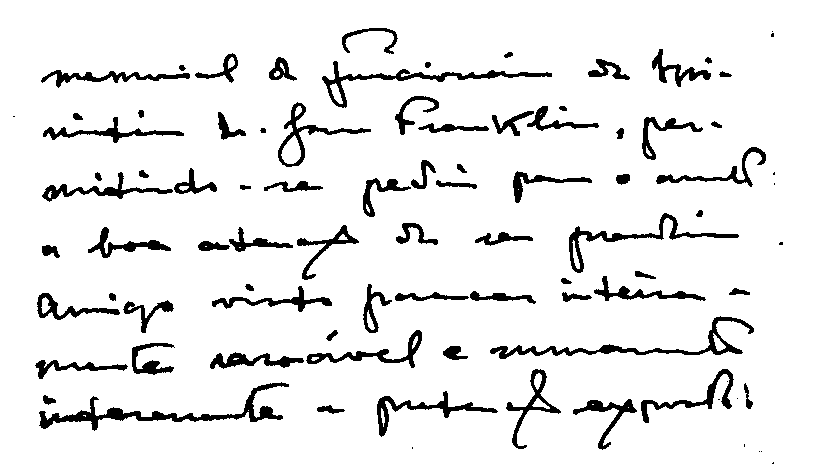 memorial do funcionário do Mi-
nistério Dr. Jorn Franklin, per-
mitindo-se pedir para o mesmo
a boa atenção do seu prezadíssimo
amigo visto parecer inteira-
mente razoável e sumamente
interessante a pretensão exposta.